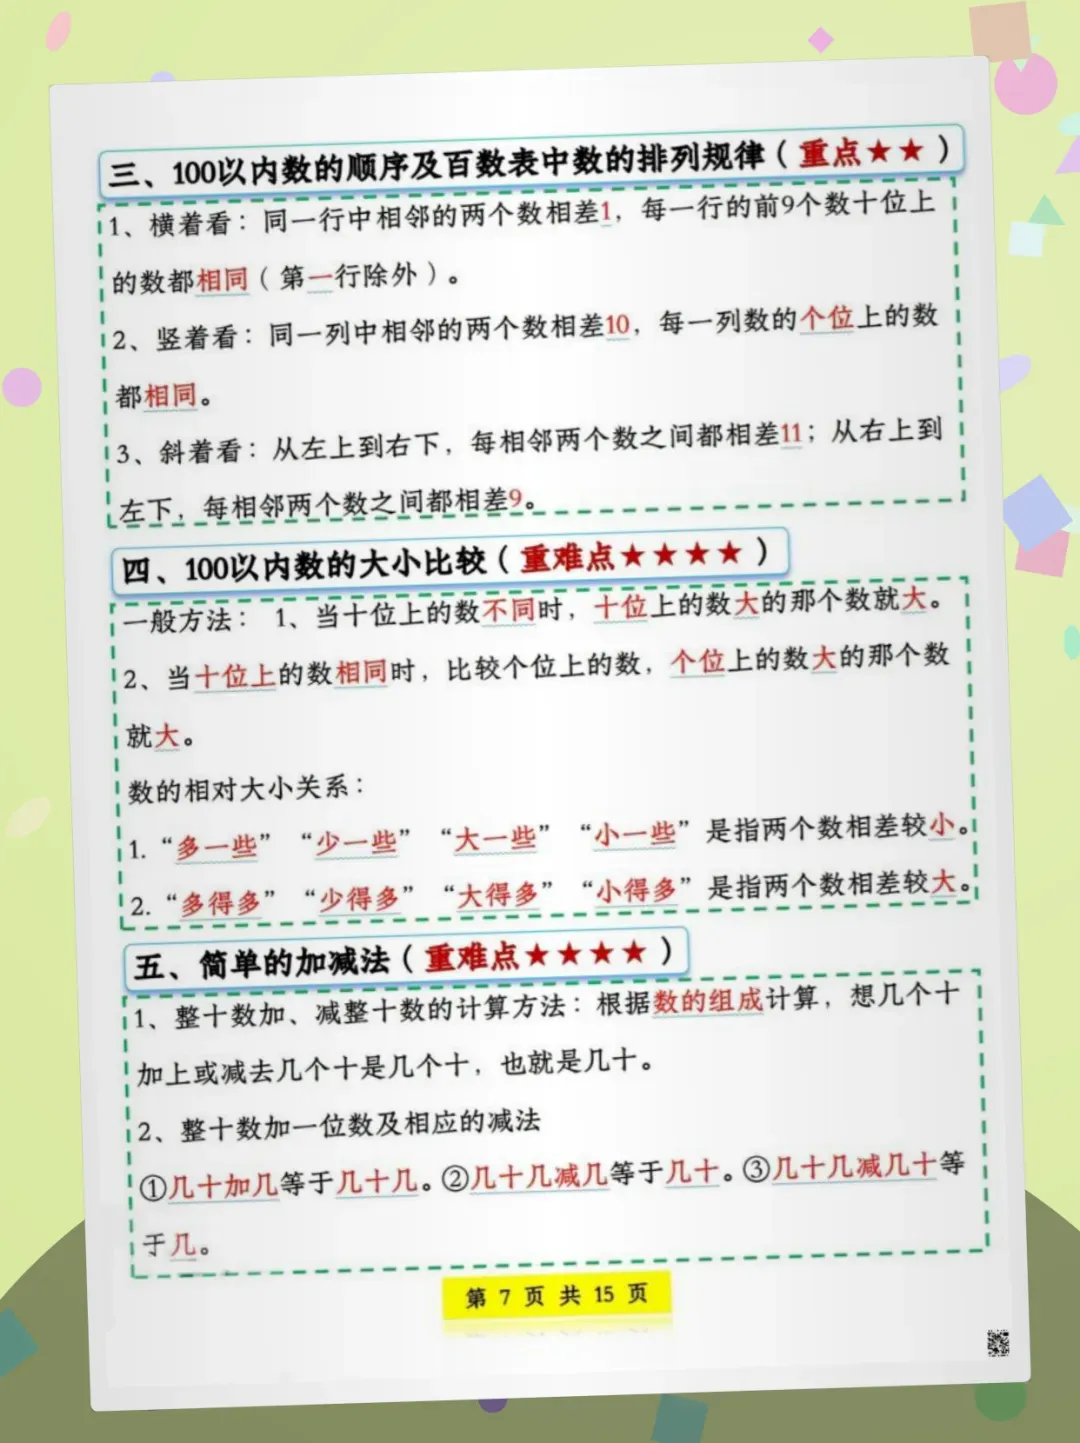 三、100以内数的顺序及百数表中数的排列规律（重点★★）
1、横着看：同一行中相邻的两个数相差1，每一行的前9个数十位上
的数都相同（第一行除外）。
2、竖着看：同一列中相邻的两个数相差10，每一列数的个位上的数
都相同。
3、斜着看：从左上到右下，每相邻两个数之间都相差11；从右上到
左下，每相邻两个数之间都相差9。
四、100以内数的大小比较（重难点★★★★）
一般方法： 1、当十位上的数不同时，十位上的数大的那个数就大。
2、当十位上的数相同时，比较个位上的数，个位上的数大的那个数
就大。
数的相对大小关系：
1. “多一些” “少一些” “大一些” “小一些” 是指两个数相差较小。
2. “多得多” “少得多” “大得多” “小得多” 是指两个数相差较大。
五、简单的加减法（重难点★★★★）
1、整十数加、减整十数的计算方法：根据数的组成计算，想几个十
加上或减去几个十是几个十，也就是几十。
2、整十数加一位数及相应的减法
①几十加几等于几十几。②几十几减几等于几十。③几十几减几十等
于几。
第 7 页 共 15 页